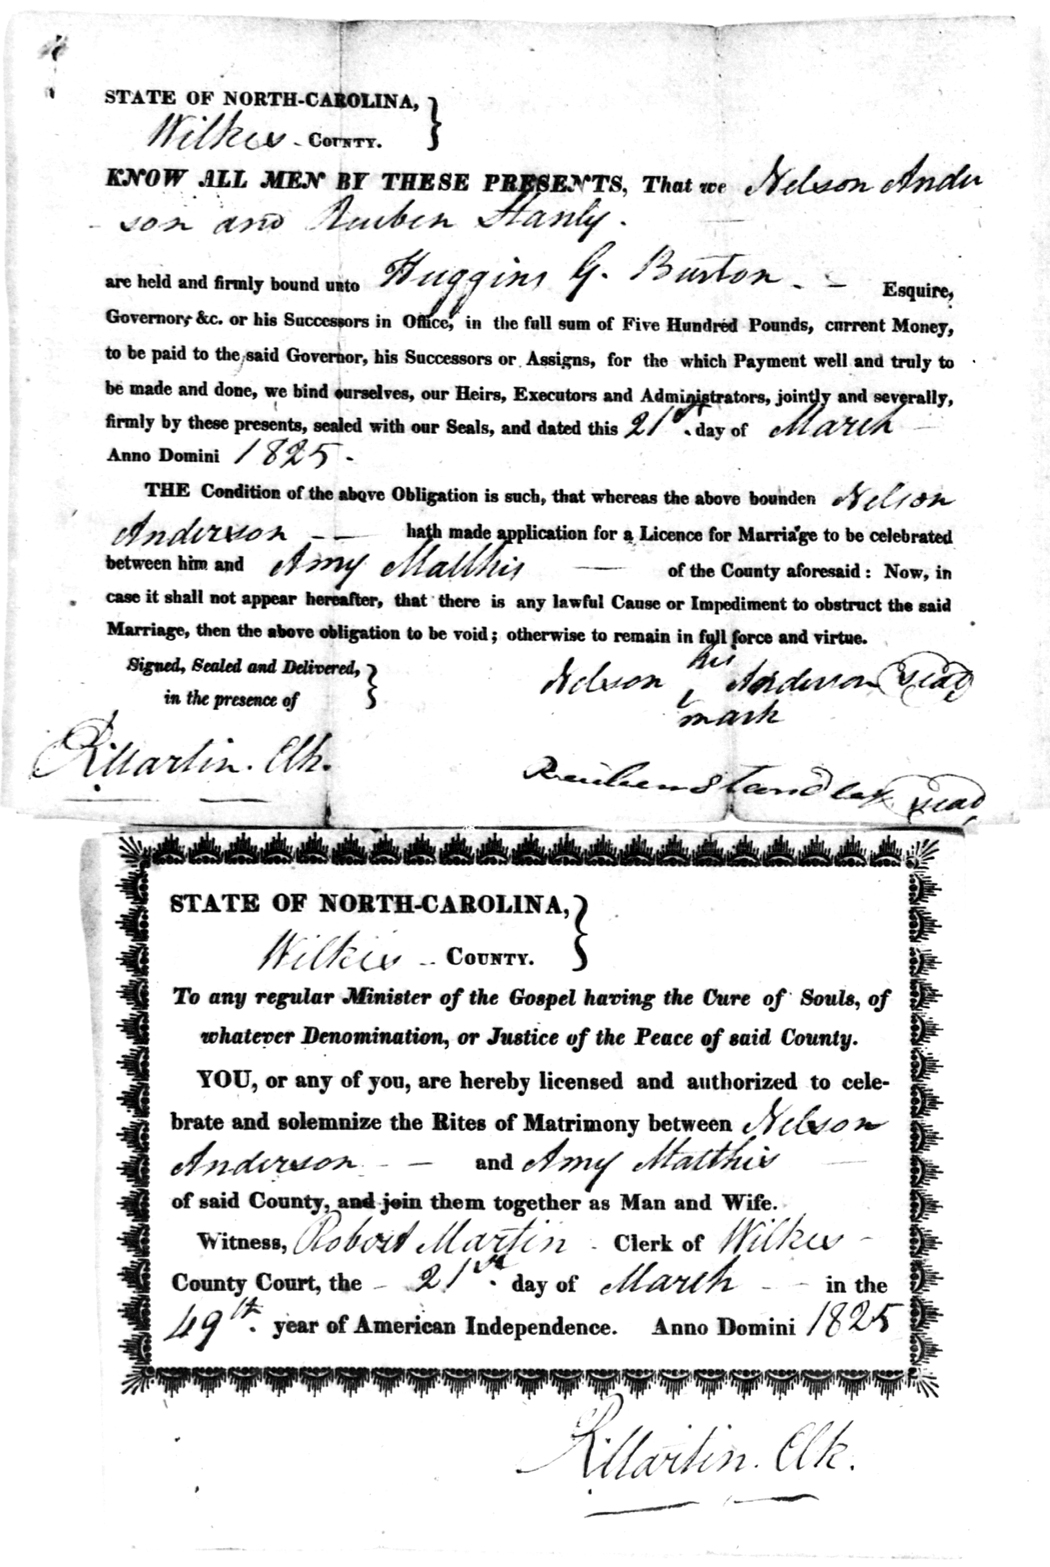 STATE OF NORTH-CAROLINA, }
Wilkes - COUNTY.
KNOW ALL MEN BY THESE PRESENTS, That we Nelson Ander
- son and Reuben Stanly.
are held and firmly bound unto Huggins G. Burton. - Esquire,
Governor, &c. or his Successors in Office, in the full sum of Five Hundred Pounds, current Money,
to be paid to the said Governor, his Successors or Assigns, for the which Payment well and truly to
be made and done, we bind ourselves, our Heirs, Executors and Administrators, jointly and severally,
firmly by these presents, sealed with our Seals, and dated this 21st. day of March
Anno Domini 1825 -
THE Condition of the above Obligation is such, that whereas the above bounden Nelson
Anderson — hath made application for a Licence for Marriage to be celebrated
between him and Amy Matthis — of the County aforesaid: Now, in
case it shall not appear hereafter, that there is any lawful Cause or Impediment to obstruct the said
Marriage, then the above obligation to be void; otherwise to remain in full force and virtue.
Signed, Sealed and Delivered, }
in the presence of
his
Nelson Anderson seal
mark
R Martin. Clk.
Reuben Standley seal
STATE OF NORTH-CAROLINA, }
Wilkes - COUNTY.
To any regular Minister of the Gospel having the Cure of Souls, of
whatever Denomination, or Justice of the Peace of said County.
YOU, or any of you, are hereby licensed and authorized to cele-
brate and solemnize the Rites of Matrimony between Nelson
Anderson - — and Amy Matthis —
of said County, and join them together as Man and Wife.
Witness, Robert Martin - Clerk of Wilkes -
County Court, the - 21st. day of March - in the
49th. year of American Independence. Anno Domini 1825
R Martin. Clk.